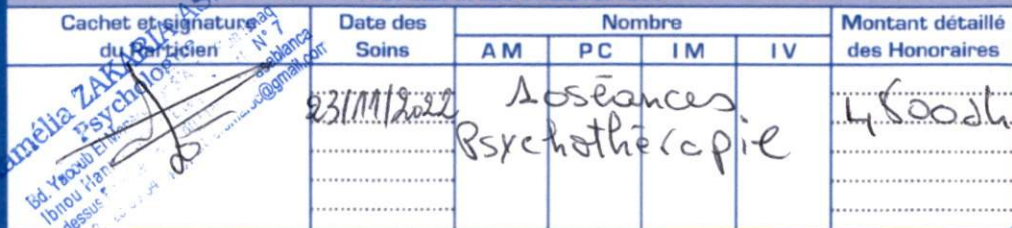 Cachet et signature
du Particien
Date des
Soins
Nombre
AM PC IM IV
Montant détaillé
des Honoraires
amélia ZAKARIA AS
Psycholo
N° 7
Bd. Yacoub El
Ibnou
dessus
@gmail.com
23/11/2022 10séances 4500dh
Psychothérapie